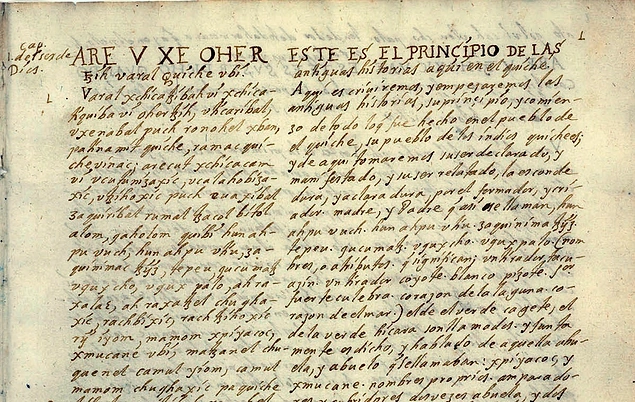 Dios.
1
ARE V XE OHER
tzih varal Quiche vbi.
Varal xchicatzibah vi xchica-
tiquiba vi oher tzih, vticaribal,
vxenabal puch ronohel xban,
pa tinamit quiche, ramac qui-
che vinac; arecut xchicacam
vi vcutunizaxic, vcalahobiza-
xic, vtzihoxic puch euaxibal
zaquiribal rumal tzacol bitol
alom, qaholom quibi hun ah-
pu vuch, hun ahpu vtiu, za-
quinimac tzyz, tepeu, qucumatz
vqux cho, vqux palo, ah ra-
xalac, ah raxa tzel chugha-
xic, rachbixic, rachtzihoxic
rij iyom, mamom xpiyacoc,
xmucane vbi, matzanel chu-
quenel camul yiom, camul
mamom chughaxic pa quiche
ESTE ES EL PRINCIPIO DE LAS
antiguas historias aqui en el quiche.
Aqui escriuiremos, y empezaremos las
antiguas historias, su principio, y comien-
zo de todo lo q̃ fue hecho en el pueblo de
el quiche, su pueblo de los indios quichees;
y de aqui tomaremos su ser declarado, y
manifestado, y su ser relatado, la esconde
dura, y aclaradura por el formador, y cri-
ador. madre, y Padre q̃ asi se llaman, hun
ahpu vuch. hun ahpu vtiu. zaquinimatzyz.
tepeu. qucumatz. vqux cho. vqux palo. (nom
bres, o atributos. q̃ significan; vn tirador tacu-
azin. vn tirador coyote. blanco pizote. Señor
fuerte culebra. corazon de la laguna. co-
razon del mar.) el de el verde cagete, el
de la verde hicara son llamados. y junta
mente es dicho, y hablado de aquella abu-
ela, y abuelo q̃ se llamaban: xpiyacoc, y
xmucane. nombres proprios. amparado-
res y cubridores dos vezes abuela, y dos